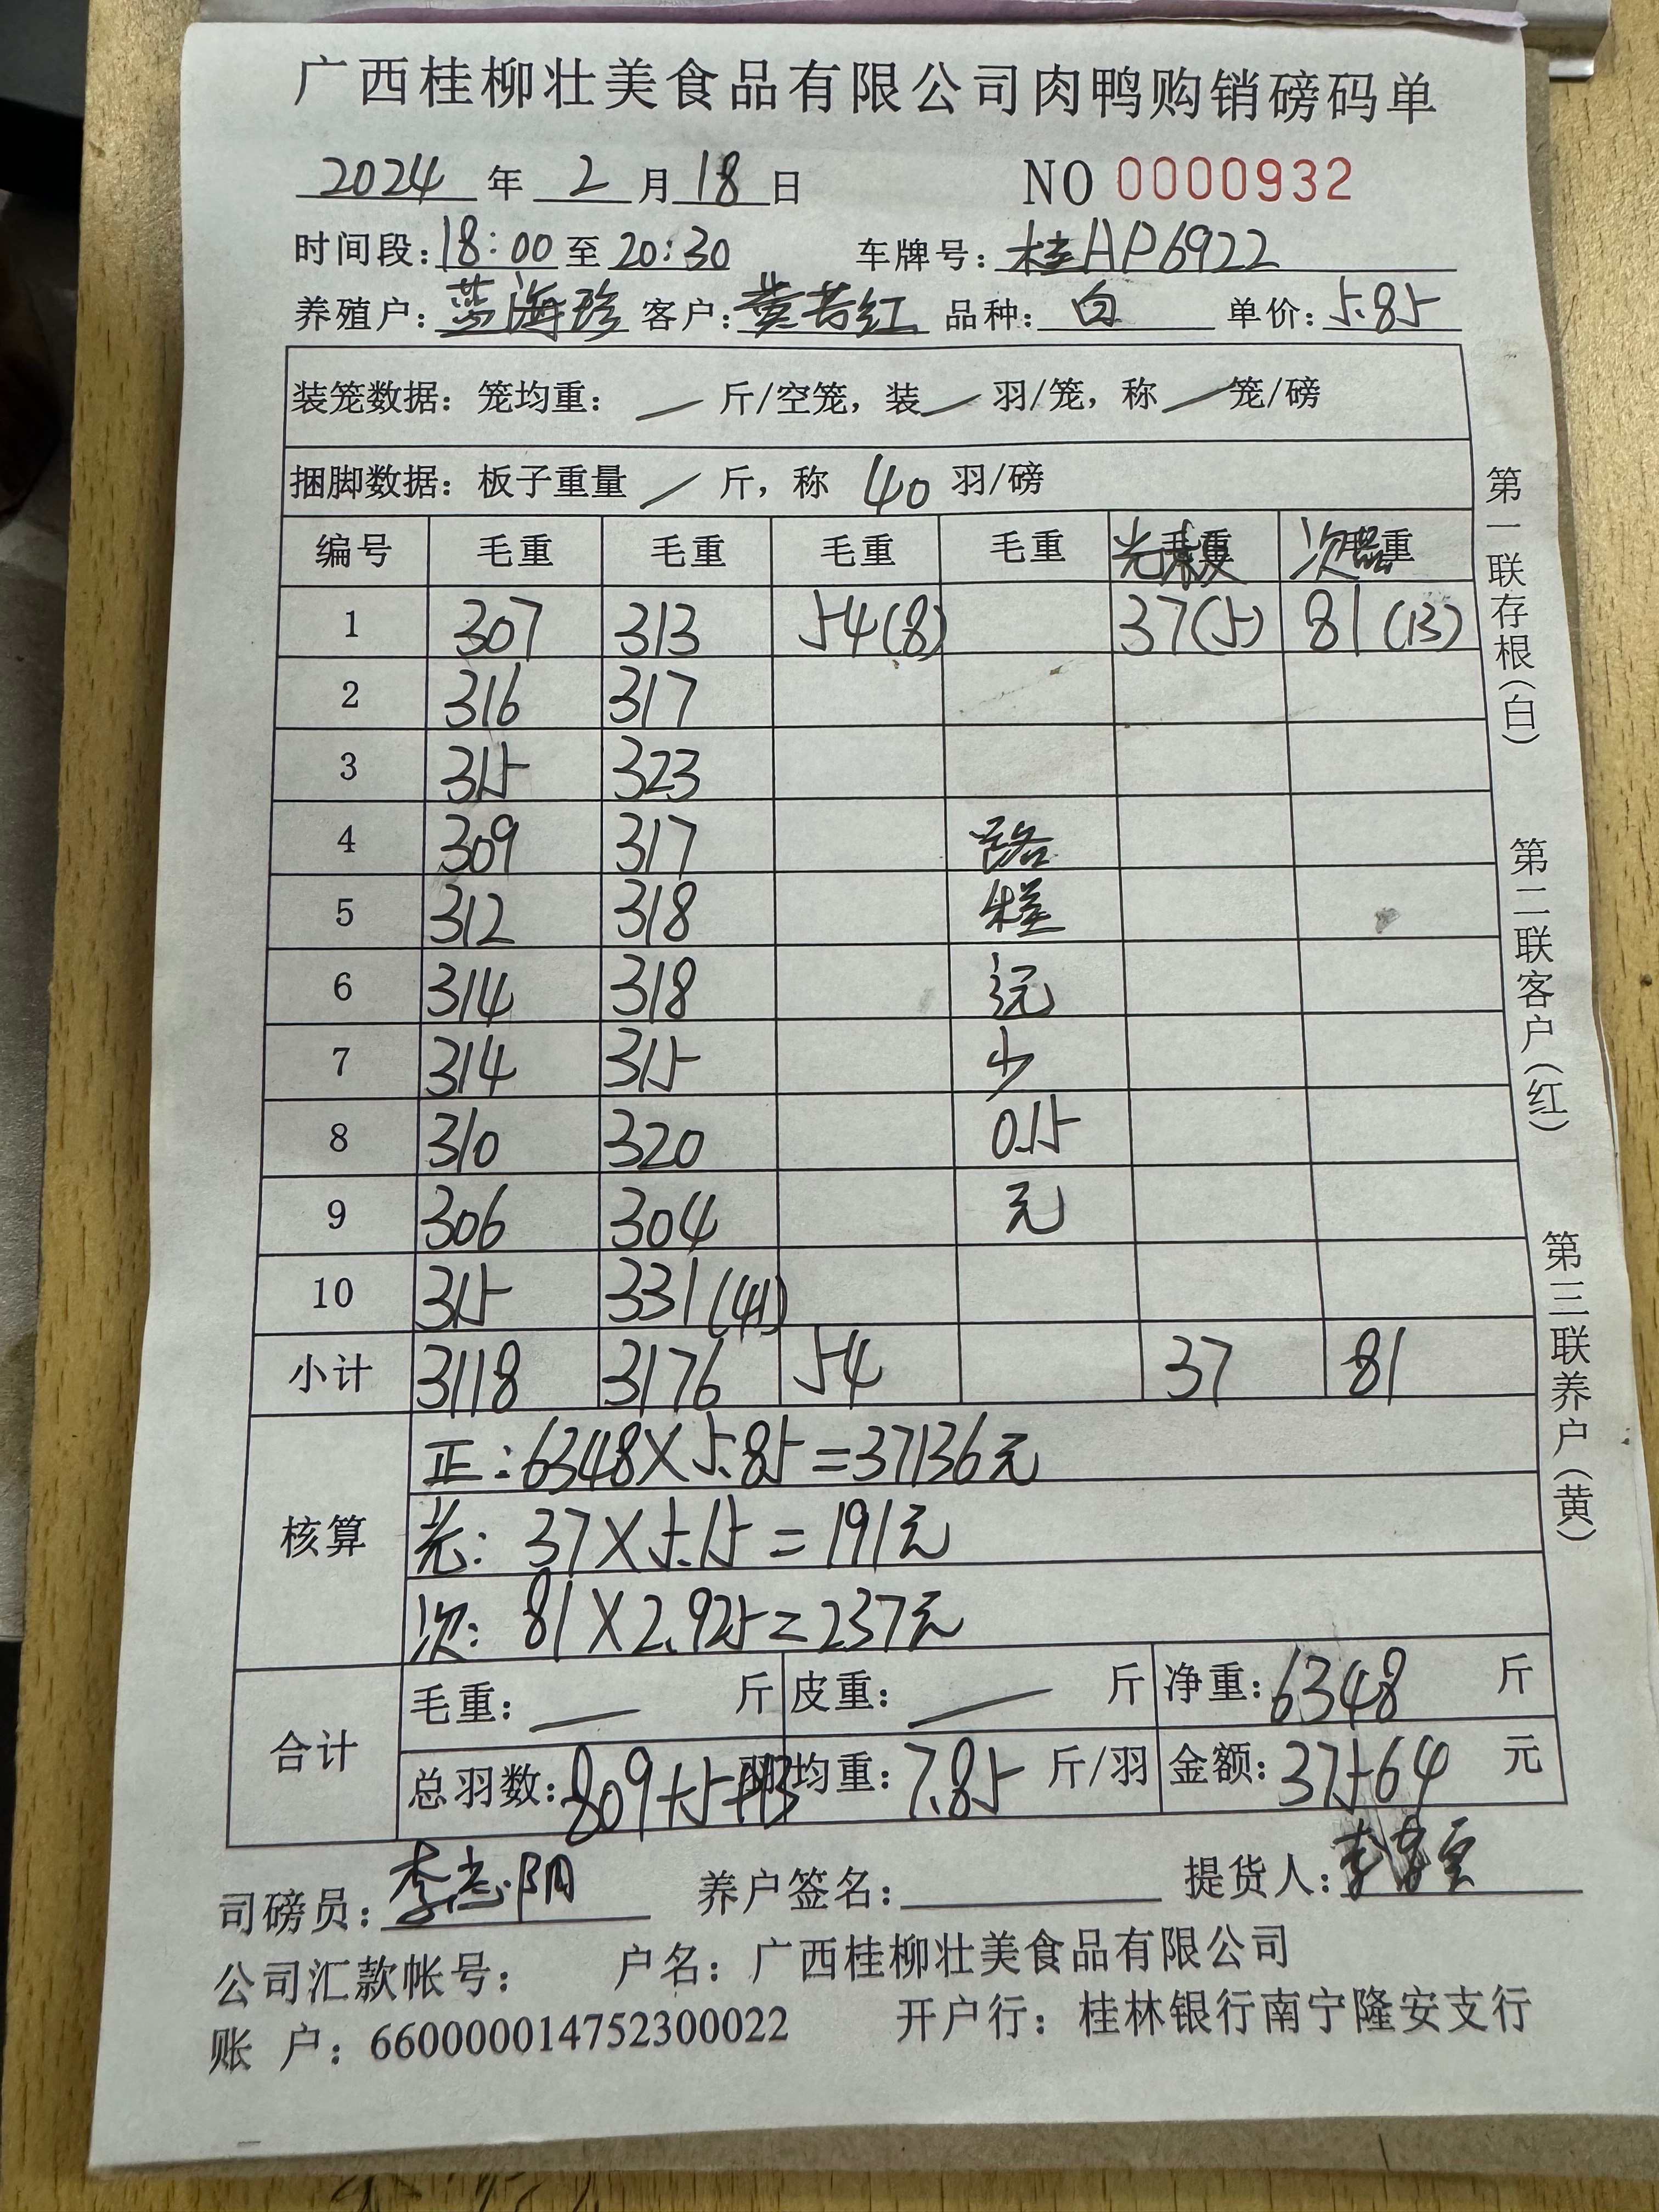 广西桂柳壮美食品有限公司肉鸭购销磅码单
2024 年 2 月 18 日 NO 0000932
时间段：18:00 至 20:30 车牌号：桂AP6922
养殖户：蓝海珍 客户：黄苦红 品种：白 单价：5.85
装笼数据：笼均重：／斤/空笼，装／羽/笼，称／笼/磅
捆脚数据：板子重量／斤，称 40 羽/磅
编号 毛重 毛重 毛重 毛重 光 次品
1 307 313 54(8) 37(5) 81(13)
2 316 317
3 315 323
4 309 317 路
5 312 318 程
6 314 318 远
7 314 315 少
8 310 320 0.15
9 306 304 元
10 315 331(41)
小计 3118 3176 54 37 81
核算
正：6348×5.85=37136元
光：37×5.15=191元
次：81×2.925=237元
合计
毛重：— 斤 皮重：— 斤 净重：6348 斤
总羽数：809+5+13 羽 均重：7.85 斤/羽 金额：37564 元
司磅员：李志阳 养户签名： 提货人：
公司汇款帐号： 户名：广西桂柳壮美食品有限公司
账 户：660000014752300022 开户行：桂林银行南宁隆安支行
第一联存根（白）
第二联客户（红）
第三联养户（黄）